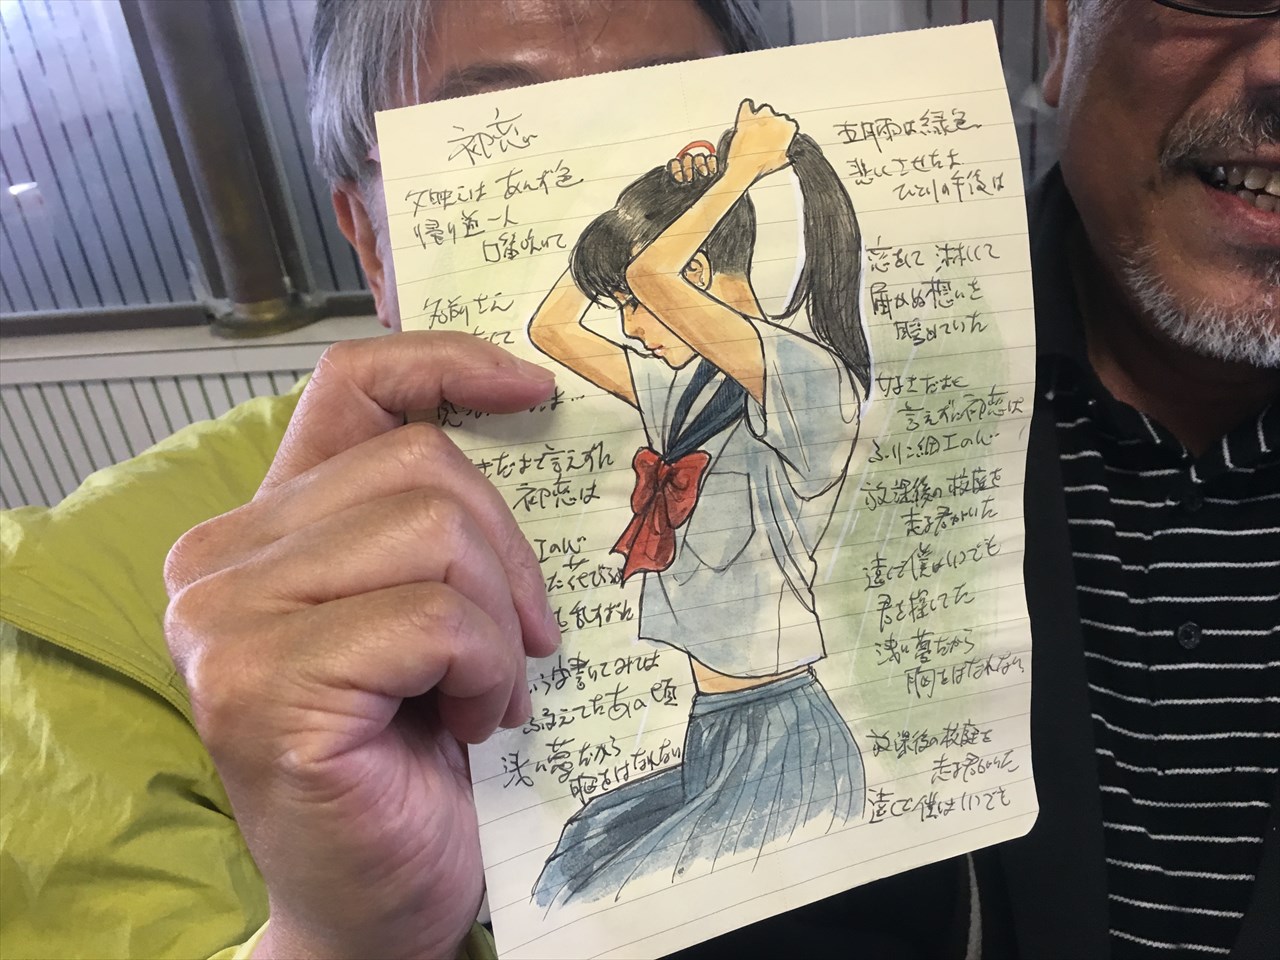 初恋
夕映えはあんず色
帰り道一人
口笛吹いて
名前さえ
て
きだよと言えずに
初恋は
工の心
た花びら
乱すばかり
書いてみては
ふるえてたあの頃
浅い夢だから
胸をはなれない
五月雨は緑色
悲しくさせたよ
ひとりの午後は
恋をして 淋しくて
届かぬ想いを
暖めていた
好きだよと
言えずに初恋は
ふりこ細工の心
放課後の校庭を
走る君がいた
遠くで僕はいつでも
君を探してた
浅い夢だから
胸をはなれない
放課後の校庭を
走る君がいた
遠くで僕はいつでも